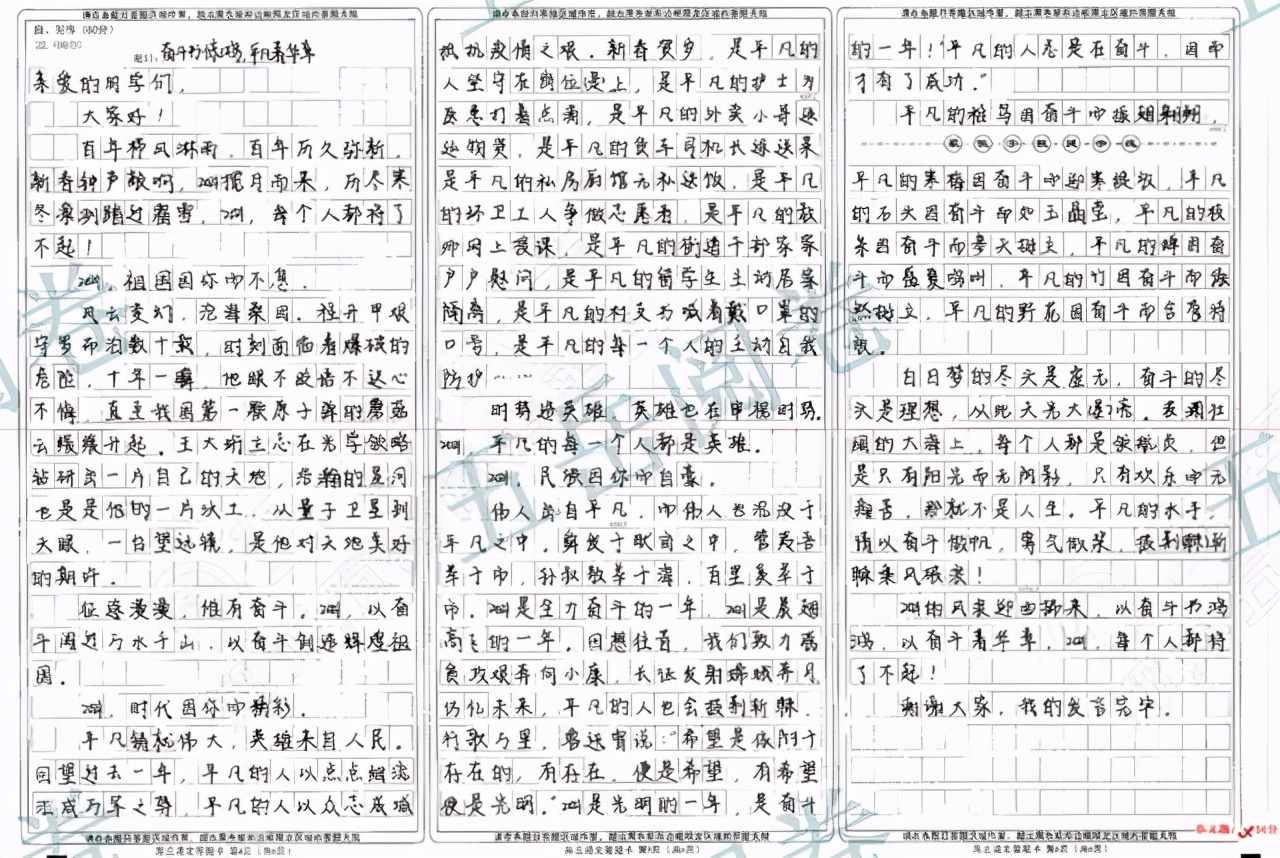 四、写作（60分）
22. （60分）
题目：奋斗书鸿鹄，平凡着华章
亲爱的同学们，
大家好！
百年栉风淋雨，百年历久弥新，
新春钟声敲响，2021揽月而来，历尽寒
冬，踏过霜雪，2021，每个人都将了
不起！
2021，祖国因你而不息。
风云变幻，沧海桑田。程开甲艰
守罗布泊数十载，时刻面临着爆破的
危险，十年一瞬，他眼不眨语不达心
不悔，直至我国第一颗原子弹的蘑菇
云缓缓升起。王大珩立志在光学领略
钻研出一片自己的天地，浩瀚的星河
也是是他的一片沃土。从量子卫星到
天眼，一台望远镜，是他对天地美好
的期许。
征途漫漫，惟有奋斗。2021，以奋
斗闯过万水千山，以奋斗创造辉煌祖
国。
2021，时代因你而精彩。
平凡铸就伟大，英雄来自人民。
回望过去一年，平凡的人以点点细流
汇成万军之势，平凡的人以众志成城
抵抗疫情之艰。新春贺岁，是平凡的
人坚守在岗位漫上，是平凡的护士为
医患打着点滴，是平凡的外卖小哥递
送物资，是平凡的货车司机长途送菜
是平凡的私房厨馆无私送饭，是平凡
的环卫工人争做志愿者，是平凡的教
师网上授课，是平凡的街道干部家家
户户慰问，是平凡的留学生主动居家
隔离，是平凡的村支书喊着戴口罩的
口号，是平凡的每一个人的主动自我
防护……
时势造英雄，英雄也在申揭时势。
2021 平凡的每一个人都是英雄。
2021，民族因你而自豪。
伟人出自平凡，而伟人也混没于
平凡之中。舜发于畎亩之中，管夷吾
举于市，孙叔敖举于海，百里奚举于
市。2021是全力奋斗的一年，2021是展翅
高飞的一年。回想往昔，我们致力脱
贫攻艰奔向小康，长征发射嫦娥奔月
仍忆未来，平凡的人也会披荆斩棘。
行歌万里，鲁迅曾说：“希望是依附于
存在的，有存在，便是希望，有希望
便是光明。”2021是光明的一年，是奋斗
的一年！平凡的人总是在奋斗，因而
才有了成功。”
平凡的雏鸟因奋斗而振翅翱翔，
平凡的寒梅因奋斗而迎寒绽放，平凡
的石头因奋斗而如玉晶莹，平凡的枝
条因奋斗而参天树立，平凡的蝉因奋
斗而盛夏鸣叫，平凡的竹因奋斗而
树立，平凡的野花因奋斗而含春待
放。
白日梦的尽头是虚无，奋斗的尽
头是理想，从此天光大漫亮。在潮社
涌的大海上，每个人都是领航员，但
是只有阳光而无阴影，只有欢乐而无
痛苦，那就不是人生。平凡的水手，
请以奋斗做帆，勇气做桨，披荆斩
棘乘风破浪！
2021的风袭迎面拂来，以奋斗书鸿
鹄，以奋斗着华章，2021，每个人都将
了不起！
谢谢大家，我的发言完毕。
五岳阅卷